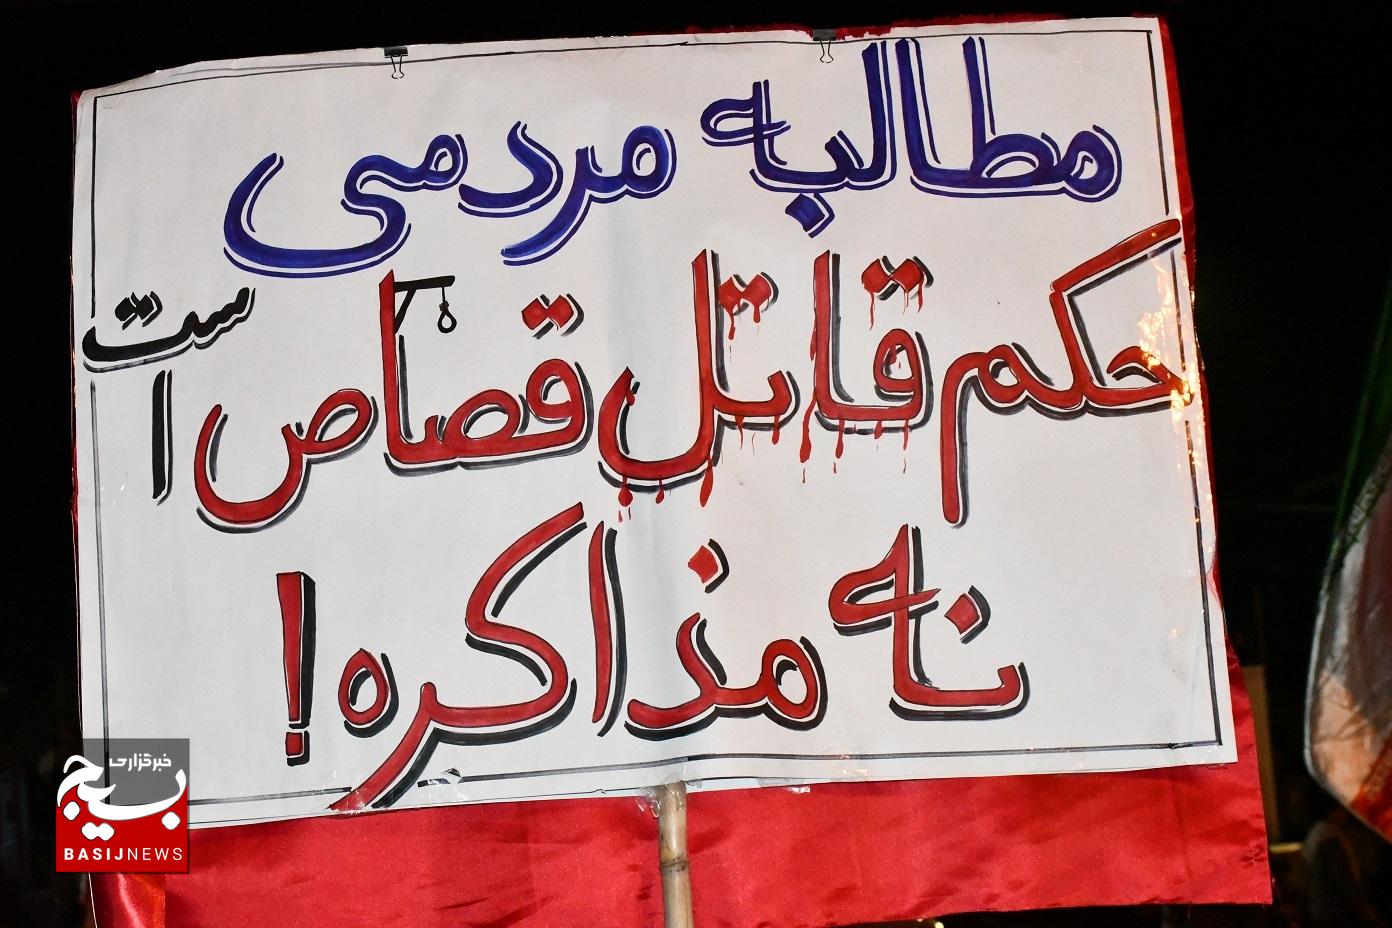 مطالبه مردمی
حکم قاتل قصاص است
نه مذاکره!
خبرگزاری
بسیج
BASIJNEWS